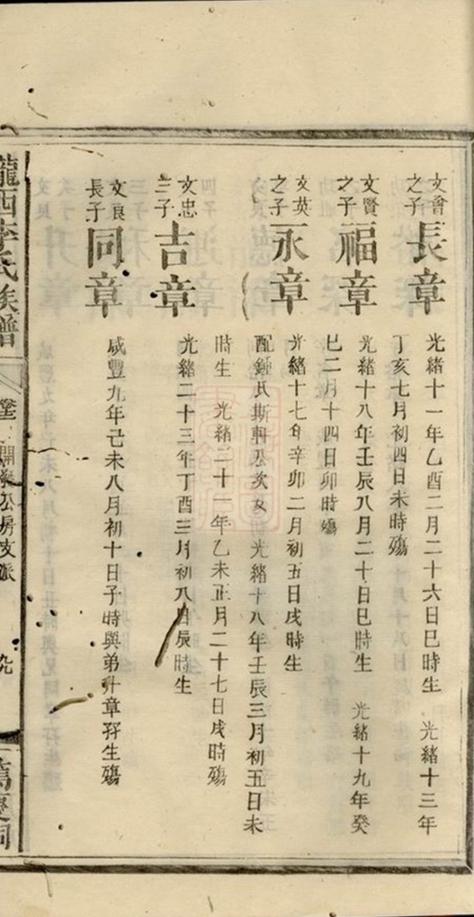 文會之子 長章 光緒十一年乙酉二月二十六日巳時生 光緒十三年
丁亥七月初四日未時殤
文賢之子 福章 光緒十八年壬辰八月二十日巳時生 光緒十九年癸
巳二月十四日卯時殤
文英之子 永章 光緒十七年辛卯二月初五日戌時生
配鍾氏斯軒公次女 光緒十八年壬辰三月初五日未
時生 光緒二十一年乙未正月二十七日戌時殤
文忠三子 吉章 光緒二十三年丁酉三月初八日辰時生
文良長子 同章 咸豐九年己未八月初十日子時與弟升章孖生殤
隴西李氏族譜
公房支派
九